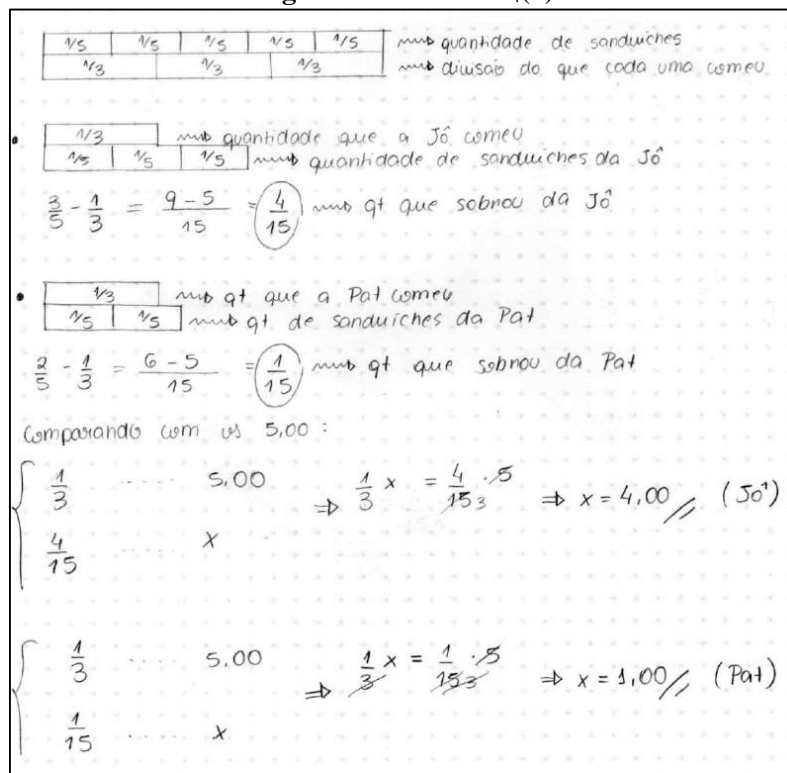 1/5 1/5 1/5 1/5 1/5 quantidade de sanduíches
1/3 1/3 1/3 divisão do que cada uma comeu
• 1/3 quantidade que a Jô comeu
1/5 1/5 1/5 quantidade de sanduíches da Jô
3/5 - 1/3 = 9-5/15 = 4/15 qt que sobrou da Jô
• 1/3 qt que a Pat comeu
1/5 1/5 qt de sanduíches da Pat
2/5 - 1/3 = 6-5/15 = 1/15 qt que sobrou da Pat
Comparando com os 5,00 :
1/3 ..... 5,00 ⇒ 1/3 x = 4/15 3 · 5 ⇒ x = 4,00 // (Jô)
4/15 ..... x
1/3 ..... 5,00 ⇒ 1/3 x = 1/15 3 · 5 ⇒ x = 1,00 // (Pat)
1/15 ..... x